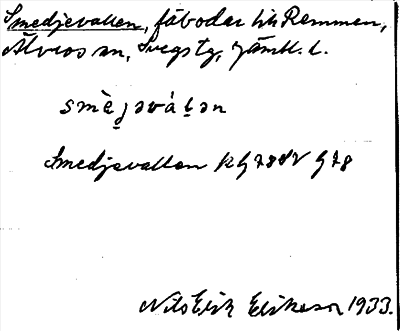 Smedjevallen, fäbodar till Remmen,
Älvros sn, Svegs tg, Jämtl. l.
smè̠ɟəvá̠t̠ən
Smedjevallen
Nils Erik Eriksson 1933.